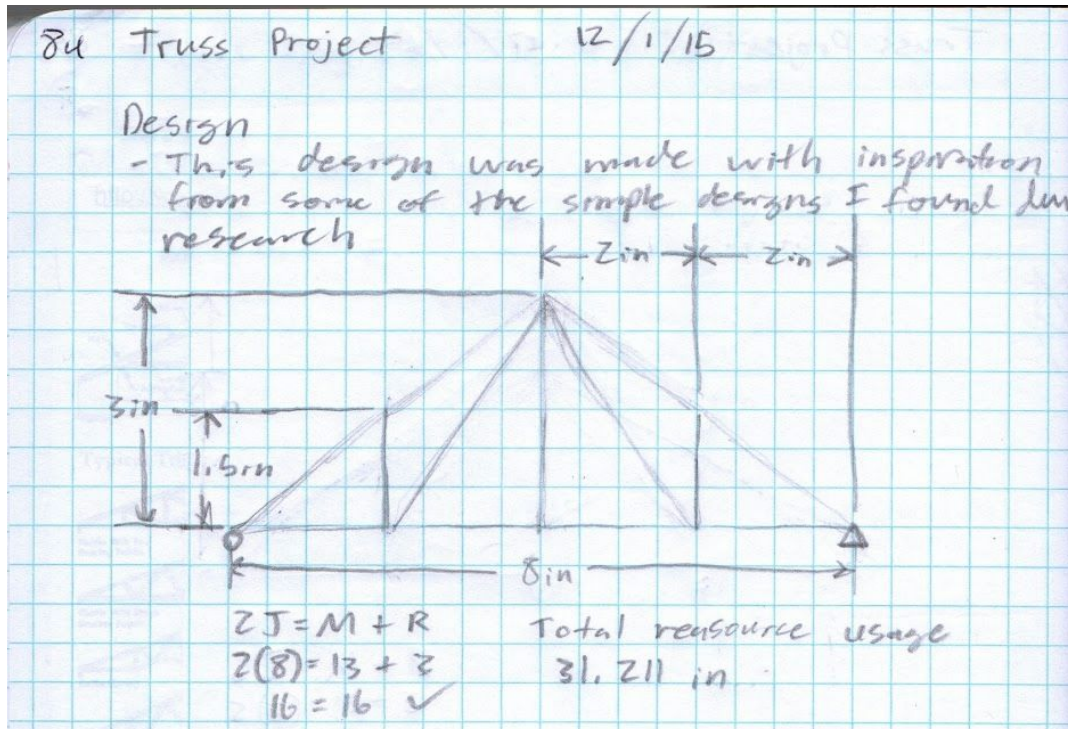 84 Truss Project 12/1/15
Design
- This design was made with inspiration
from some of the simple designs I found
research
2in 2in
3in
1.5in
8in
2J = M + R
2(8) = 13 + 3
16 = 16 ✓
Total reasource usage
31.211 in